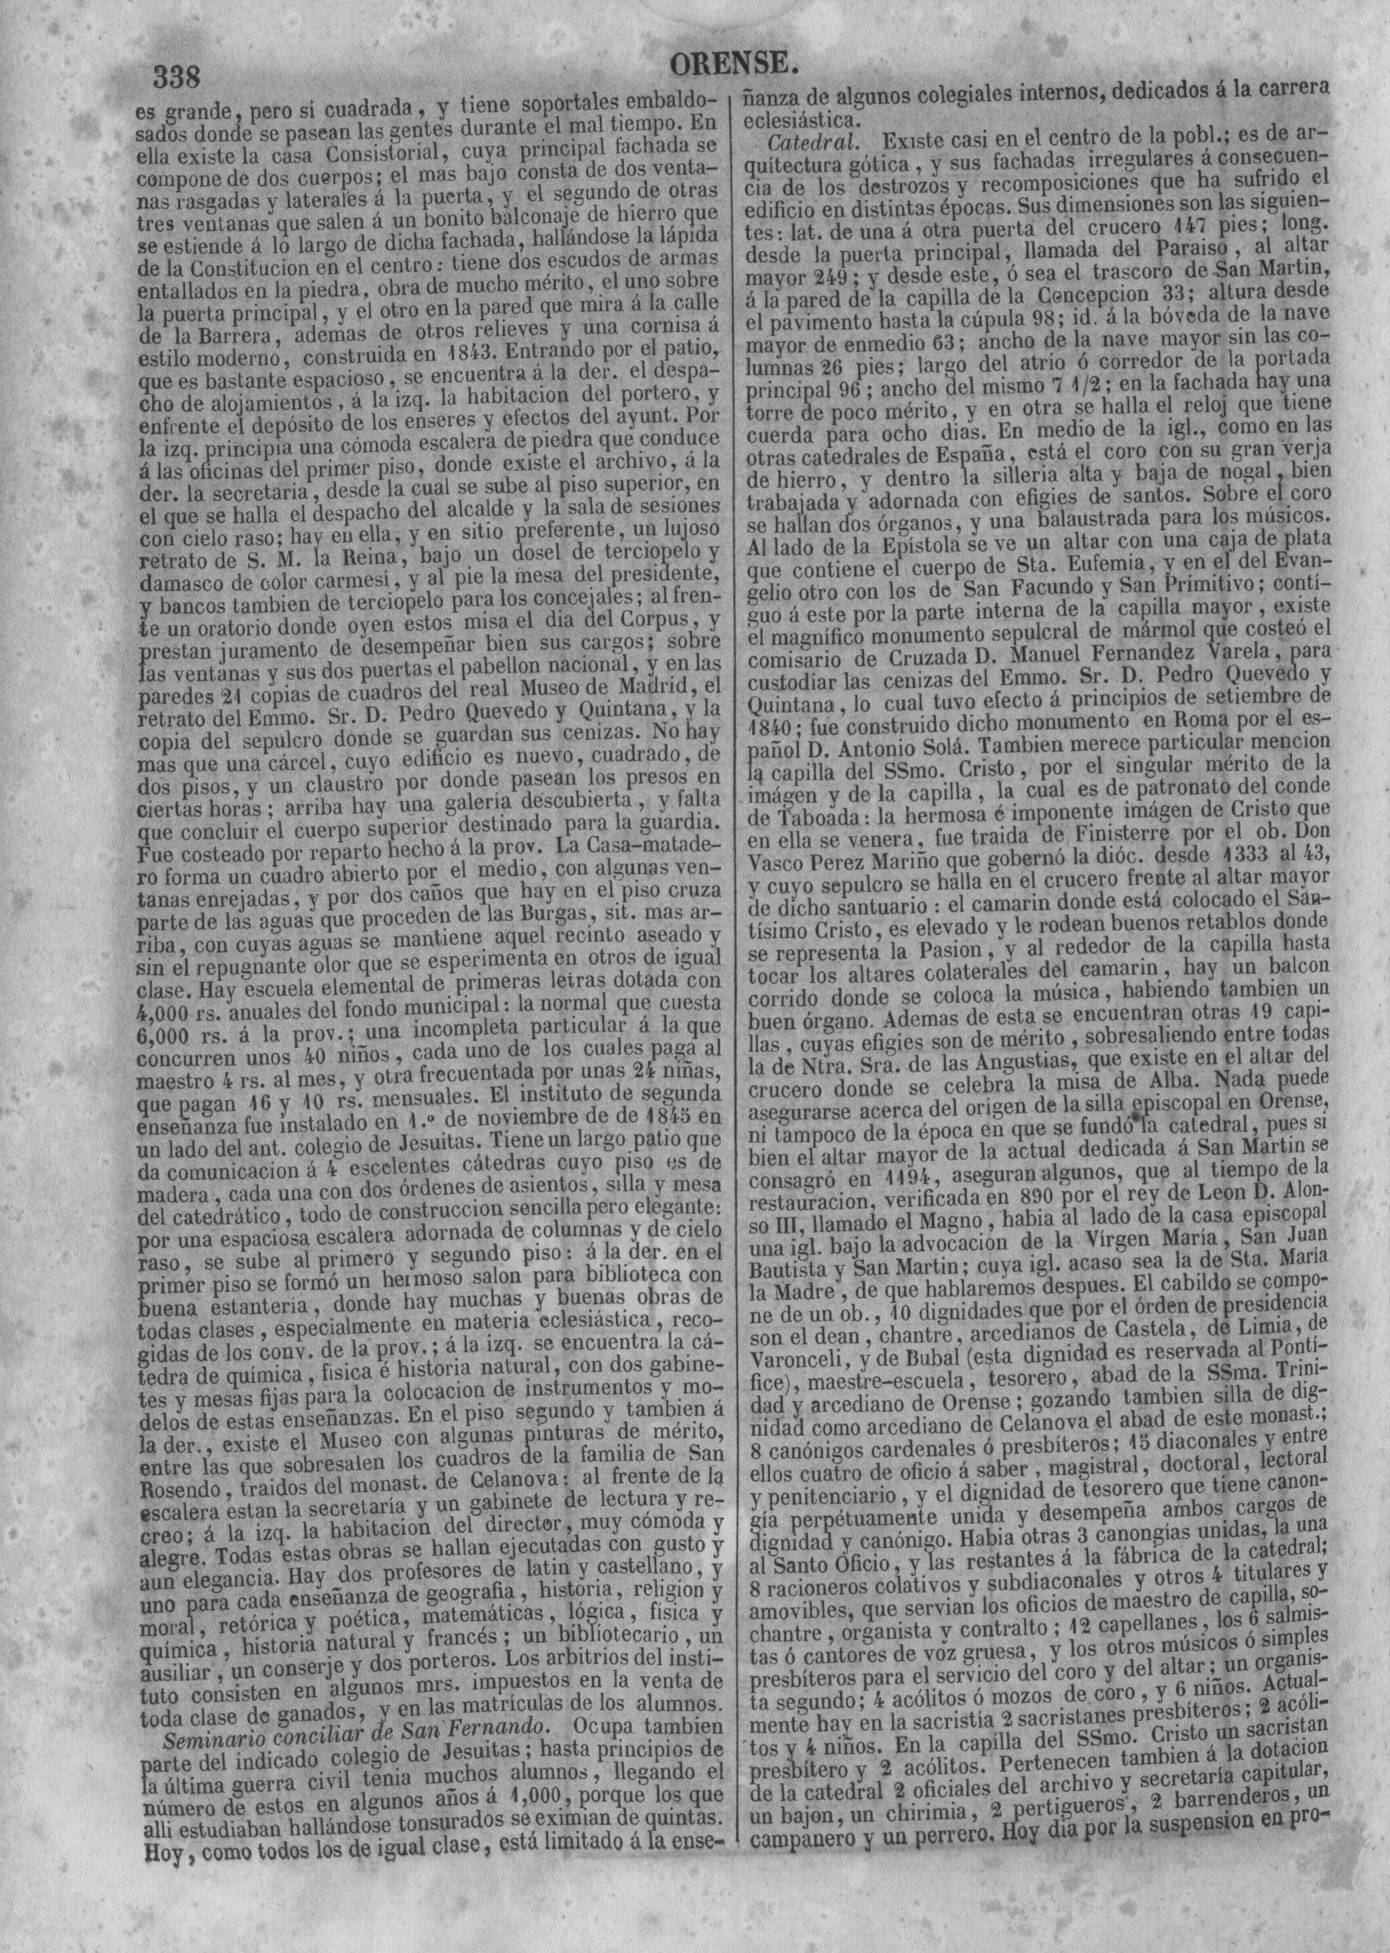 338
ORENSE.
es grande, pero si cuadrada, y tiene soportales embaldo-
sados donde se pasean las gentes durante el mal tiempo. En
ella existe la casa Consistorial, cuya principal fachada se
compone de dos cuerpos; el mas bajo consta de dos venta-
nas rasgadas y laterales á la puerta, y el segundo de otras
tres ventanas que salen á un bonito balconaje de hierro que
se estiende á lo largo de dicha fachada, hallándose la lápida
de la Constitucion en el centro: tiene dos escudos de armas
entallados en la piedra, obra de mucho mérito, el uno sobre
la puerta principal, y el otro en la pared que mira á la calle
de la Barrera, ademas de otros relieves y una cornisa á
estilo moderno, construida en 1843. Entrando por el patio,
que es bastante espacioso, se encuentra á la der. el despa-
cho de alojamientos, á la izq. la habitacion del portero, y
enfrente el depósito de los enseres y efectos del ayunt. Por
la izq. principia una cómoda escalera de piedra que conduce
á las oficinas del primer piso, donde existe el archivo, á la
der. la secretaria, desde la cual se sube al piso superior, en
el que se halla el despacho del alcalde y la sala de sesiones
con cielo raso; hay en ella, y en sitio preferente, un lujoso
retrato de S. M. la Reina, bajo un dosel de terciopelo y
damasco de color carmesí, y al pie la mesa del presidente,
y bancos tambien de terciopelo para los concejales; al fren-
te un oratorio donde oyen estos misa el dia del Corpus, y
prestan juramento de desempeñar bien sus cargos; sobre
las ventanas y sus dos puertas el pabellon nacional, y en las
paredes 21 copias de cuadros del real Museo de Madrid, el
retrato del Emmo. Sr. D. Pedro Quevedo y Quintana, y la
copia del sepulcro donde se guardan sus cenizas. No hay
mas que una cárcel, cuyo edificio es nuevo, cuadrado, de
dos pisos, y un claustro por donde pasean los presos en
ciertas horas; arriba hay una galeria descubierta, y falta
que concluir el cuerpo superior destinado para la guardia.
Fue costeado por reparto hecho á la prov. La Casa-matade-
ro forma un cuadro abierto por el medio, con algunas ven-
tanas enrejadas, y por dos caños que hay en el piso cruza
parte de las aguas que proceden de las Burgas, sit. mas ar-
riba, con cuyas aguas se mantiene aquel recinto aseado y
sin el repugnante olor que se esperimenta en otros de igual
clase. Hay escuela elemental de primeras letras dotada con
4,000 rs. anuales del fondo municipal: la normal que cuesta
6,000 rs. á la prov.; una incompleta particular á la que
concurren unos 40 niños, cada uno de los cuales paga al
maestro 4 rs. al mes, y otra frecuentada por unas 24 niñas,
que pagan 16 y 10 rs. mensuales. El instituto de segunda
enseñanza fue instalado en 1.º de noviembre de de 1845 en
un lado del ant. colegio de Jesuitas. Tiene un largo patio que
da comunicacion á 4 escelentes cátedras cuyo piso es de
madera, cada una con dos órdenes de asientos, silla y mesa
del catedrático, todo de construccion sencilla pero elegante:
por una espaciosa escalera adornada de columnas y de cielo
raso, se sube al primero y segundo piso: á la der. en el
primer piso se formó un hermoso salon para biblioteca con
buena estantería, donde hay muchas y buenas obras de
todas clases, especialmente en materia eclesiástica, reco-
gidas de los conv. de la prov.; á la izq. se encuentra la cá-
tedra de química, fisica é historia natural, con dos gabine-
tes y mesas fijas para la colocacion de instrumentos y mo-
delos de estas enseñanzas. En el piso segundo y tambien á
la der., existe el Museo con algunas pinturas de mérito,
entre las que sobresalen los cuadros de la familia de San
Rosendo, traidos del monast. de Celanova: al frente de la
escalera estan la secretaría y un gabinete de lectura y re-
creo; á la izq. la habitacion del director, muy cómoda y
alegre. Todas estas obras se hallan ejecutadas con gusto y
aun elegancia. Hay dos profesores de latin y castellano, y
uno para cada enseñanza de geografia, historia, religion y
moral, retórica y poética, matemáticas, lógica, fisica y
química, historia natural y francés; un bibliotecario, un
ausiliar, un conserje y dos porteros. Los arbitrios del insti-
tuto consisten en algunos mrs. impuestos en la venta de
toda clase de ganados, y en las matrículas de los alumnos.
Seminario conciliar de San Fernando. Ocupa tambien
parte del indicado colegio de Jesuitas; hasta principios de
la última guerra civil tenia muchos alumnos, llegando el
número de estos en algunos años á 1,000, porque los que
alli estudiaban hallándose tonsurados se eximian de quintas.
Hoy, como todos los de igual clase, está limitado á la ense-
ñanza de algunos colegiales internos, dedicados á la carrera
eclesiástica.
Catedral. Existe casi en el centro de la pobl.; es de ar-
quitectura gótica, y sus fachadas irregulares á consecuen-
cia de los destrozos y recomposiciones que ha sufrido el
edificio en distintas épocas. Sus dimensiones son las siguien-
tes: lat. de una á otra puerta del crucero 147 pies; long.
desde la puerta principal, llamada del Paraiso, al altar
mayor 249; y desde este, ó sea el trascoro de San Martin,
á la pared de la capilla de la Concepcion 33; altura desde
el pavimento hasta la cúpula 98; id. á la bóveda de la nave
mayor de enmedio 63; ancho de la nave mayor sin las co-
lumnas 26 pies; largo del atrio ó corredor de la portada
principal 96; ancho del mismo 7 1/2; en la fachada hay una
torre de poco mérito, y en otra se halla el reloj que tiene
cuerda para ocho dias. En medio de la igl., como en las
otras catedrales de España, está el coro con su gran verja
de hierro, y dentro la silleria alta y baja de nogal, bien
trabajada y adornada con efigies de santos. Sobre el coro
se hallan dos órganos, y una balaustrada para los músicos.
Al lado de la Epístola se ve un altar con una caja de plata
que contiene el cuerpo de Sta. Eufemia, y en el del Evan-
gelio otro con los de San Facundo y San Primitivo; contí-
guo á este por la parte interna de la capilla mayor, existe
el magnífico monumento sepulcral de mármol que costeó el
comisario de Cruzada D. Manuel Fernandez Varela, para
custodiar las cenizas del Emmo. Sr. D. Pedro Quevedo y
Quintana, lo cual tuvo efecto á principios de setiembre de
1840; fue construido dicho monumento en Roma por el es-
pañol D. Antonio Solá. Tambien merece particular mencion
la capilla del SSmo. Cristo, por el singular mérito de la
imágen y de la capilla, la cual es de patronato del conde
de Taboada: la hermosa é imponente imágen de Cristo que
en ella se venera, fue traida de Finisterre por el ob. Don
Vasco Perez Mariño que gobernó la dióc. desde 1333 al 43,
y cuyo sepulcro se halla en el crucero frente al altar mayor
de dicho santuario: el camarin donde está colocado el San-
tísimo Cristo, es elevado y le rodean buenos retablos donde
se representa la Pasion, y al rededor de la capilla hasta
tocar los altares colaterales del camarin, hay un balcon
corrido donde se coloca la música, habiendo tambien un
buen órgano. Ademas de esta se encuentran otras 19 capi-
llas, cuyas efigies son de mérito, sobresaliendo entre todas
la de Ntra. Sra. de las Angustias, que existe en el altar del
crucero donde se celebra la misa de Alba. Nada puede
asegurarse acerca del origen de la silla episcopal en Orense,
ni tampoco de la época en que se fundó la catedral, pues si
bien el altar mayor de la actual dedicada á San Martin se
consagró en 1194, aseguran algunos, que al tiempo de la
restauracion, verificada en 890 por el rey de Leon D. Alon-
so III, llamado el Magno, habia al lado de la casa episcopal
una igl. bajo la advocacion de la Vírgen Maria, San Juan
Bautista y San Martin; cuya igl. acaso sea la de Sta. María
la Madre, de que hablaremos despues. El cabildo se compo-
ne de un ob., 10 dignidades que por el órden de presidencia
son el dean, chantre, arcedianos de Castela, de Limia, de
Varonceli, y de Bubal (esta dignidad es reservada al Pontí-
fice), maestre-escuela, tesorero, abad de la SSma. Trini-
dad y arcediano de Orense; gozando tambien silla de dig-
nidad como arcediano de Celanova el abad de este monast.;
8 canónigos cardenales ó presbíteros; 15 diaconales y entre
ellos cuatro de oficio á saber, magistral, doctoral, lectoral
y penitenciario, y el dignidad de tesorero que tiene canon-
gía perpétuamente unida y desempeña ambos cargos de
dignidad y canónigo. Habia otras 3 canongías unidas, la una
al Santo Oficio, y las restantes á la fábrica de la catedral;
8 racioneros colativos y subdiaconales y otros 4 titulares y
amovibles, que servian los oficios de maestro de capilla, so-
chantre, organista y contralto; 12 capellanes, los 6 salmis-
tas ó cantores de voz gruesa, y los otros músicos ó simples
presbíteros para el servicio del coro y del altar; un organis-
ta segundo; 4 acólitos ó mozos de coro, y 6 niños. Actual-
mente hay en la sacristía 2 sacristanes presbíteros; 2 acóli-
tos y 4 niños. En la capilla del SSmo. Cristo un sacristan
presbítero y 2 acólitos. Pertenecen tambien á la dotacion
de la catedral 2 oficiales del archivo y secretaría capitular,
un bajon, un chirimia, 2 pertigueros, 2 barrenderos, un
campanero y un perrero. Hoy dia por la suspension en pro-